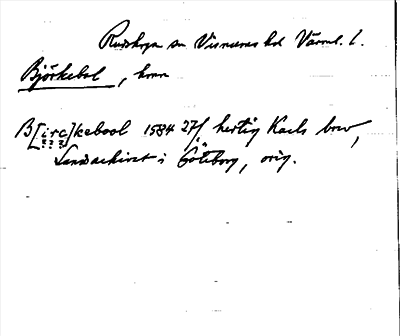 Rudskoga sn Visnums hd Värml. l.
Björkebol, hmn
B[irc]kebool 1584 27/ hertig Karls brev,
???
Landsarkivet i Göteborg, orig.